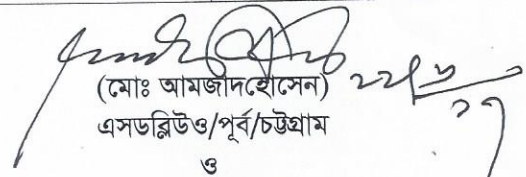 (মোঃ আমজাদহোসেন)
এসডব্লিউও/পূর্ব/চট্টগ্রাম
ও